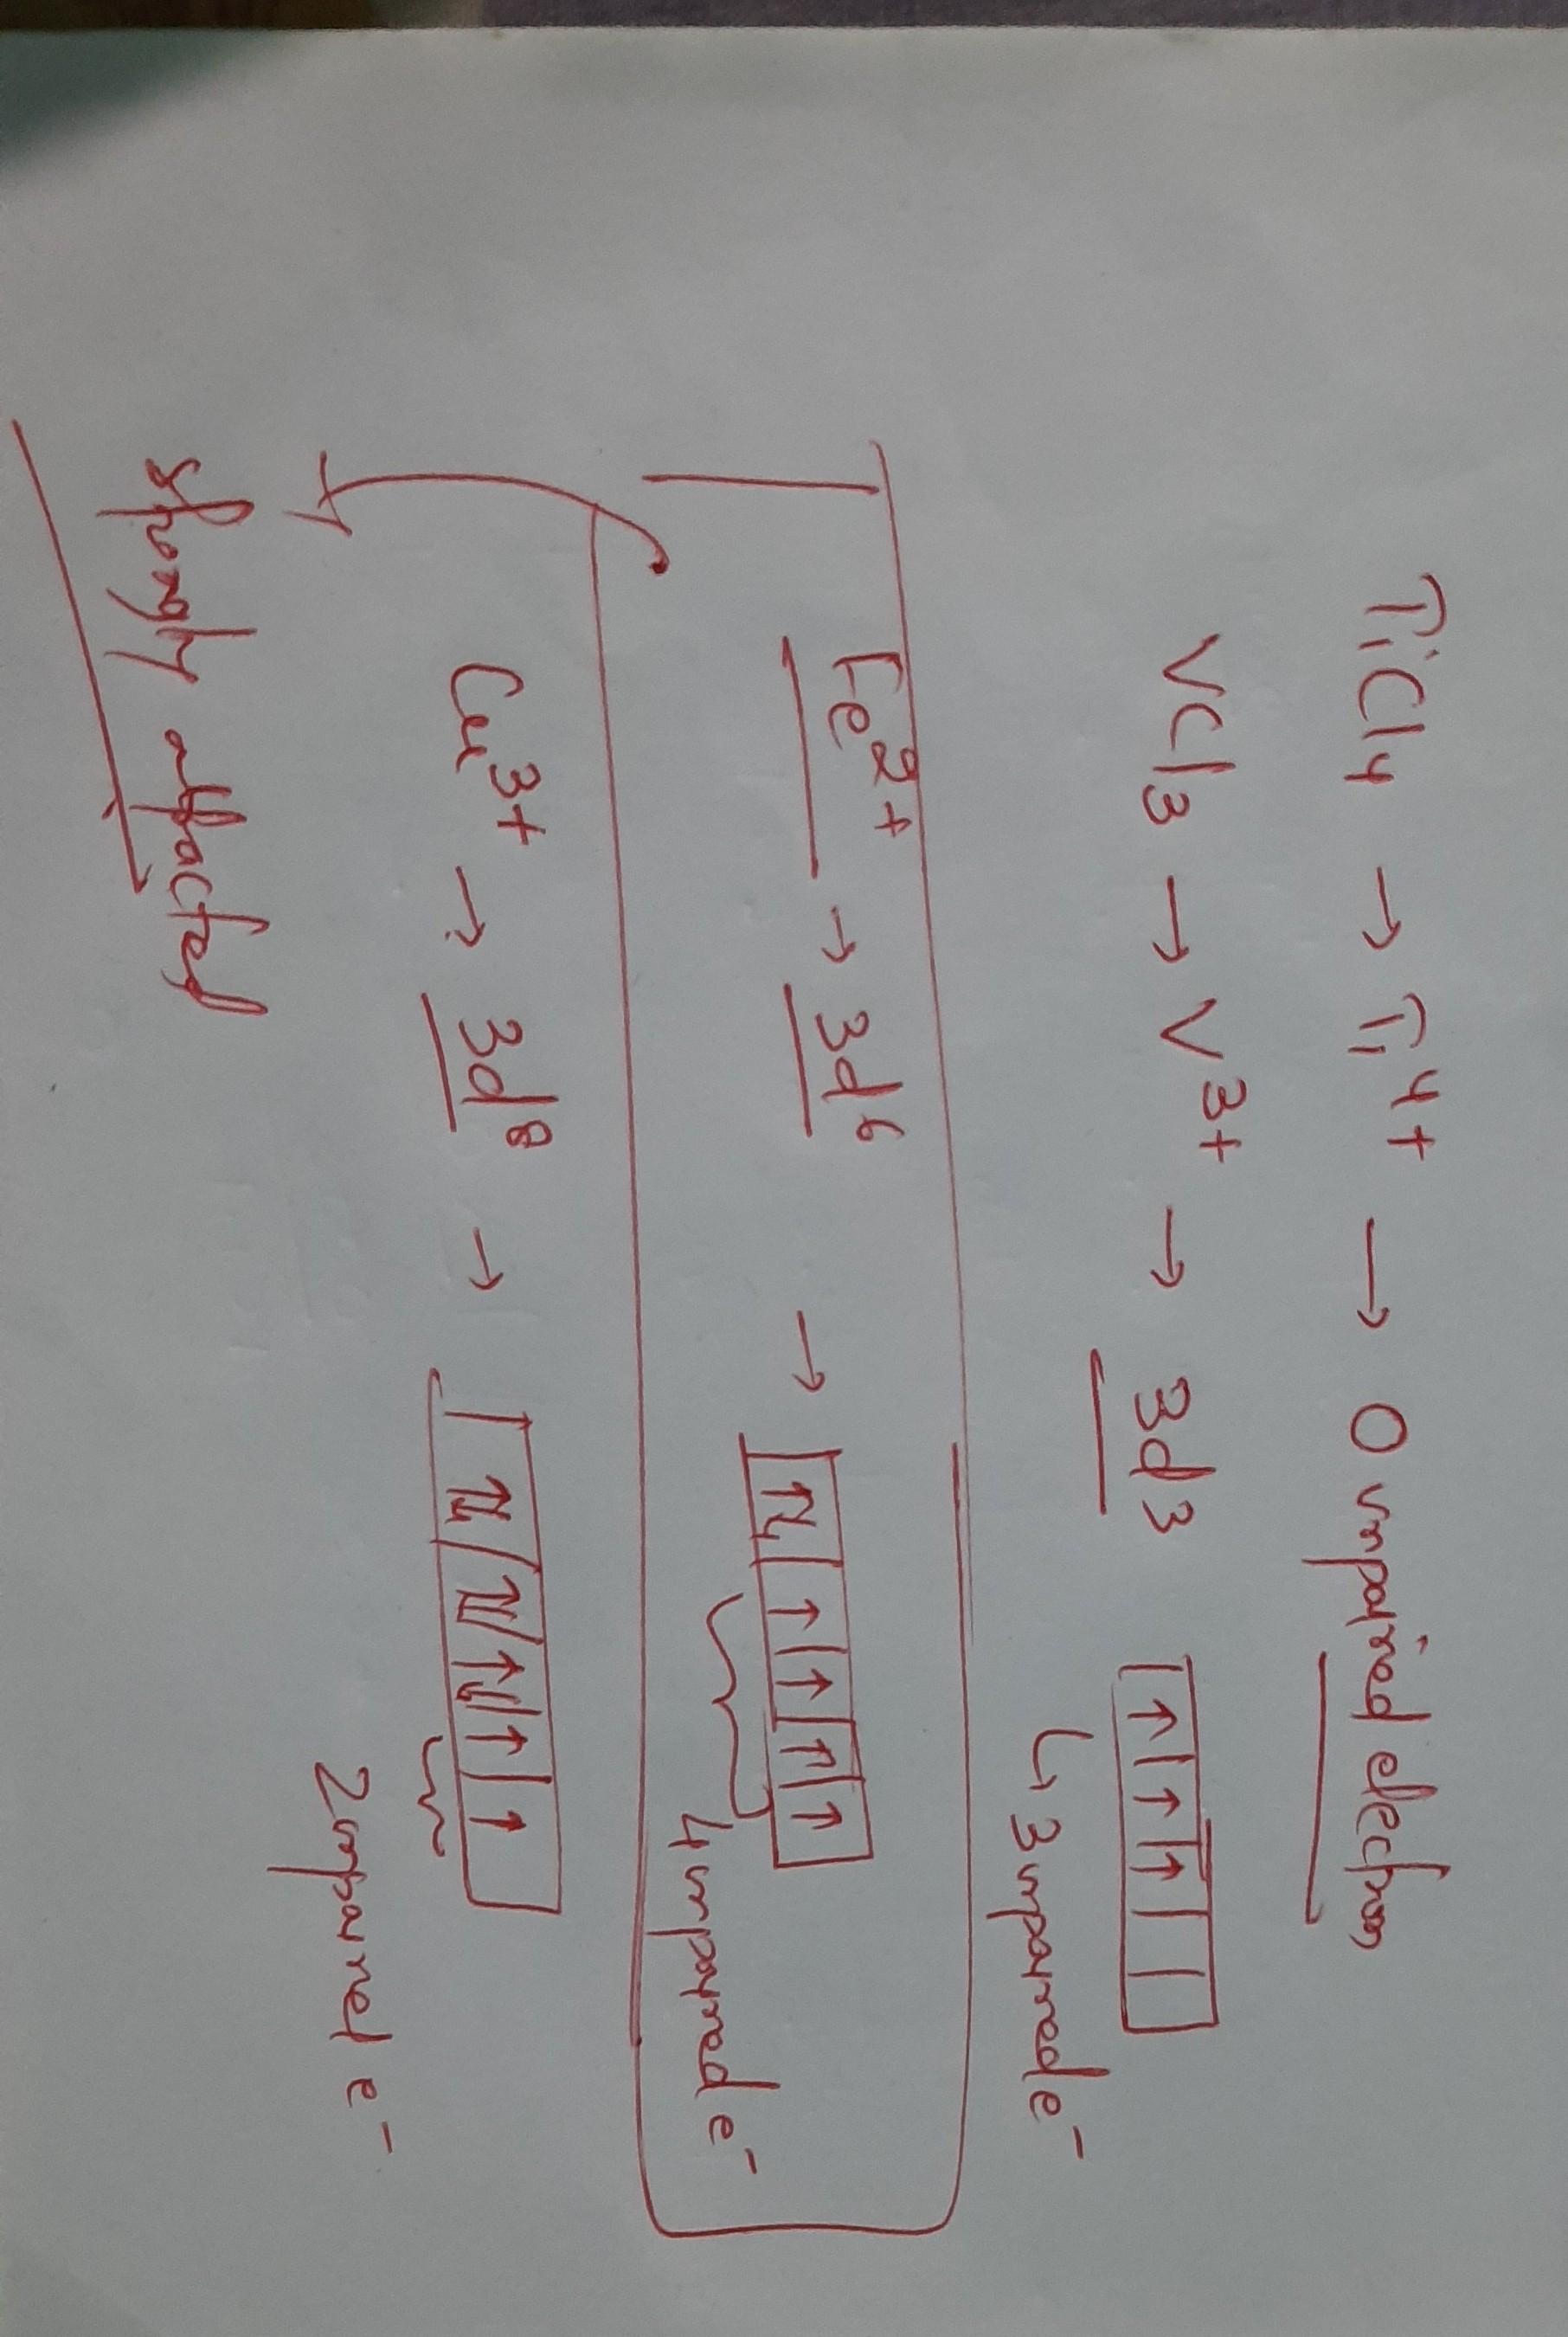 TiCl4 → Ti4+ → 0 unpaired electron
VCl3 → V3+ → 3d3 ↑ ↑ ↑
↳ 3 unpaired e-
Fe2+ → 3d6 → ↑↓ ↑ ↑ ↑ ↑
4 unpaired e-
Cu3+ → 3d8 → ↑↓ ↑↓ ↑↓ ↑ ↑
2 unpaired e-
strongly attracted